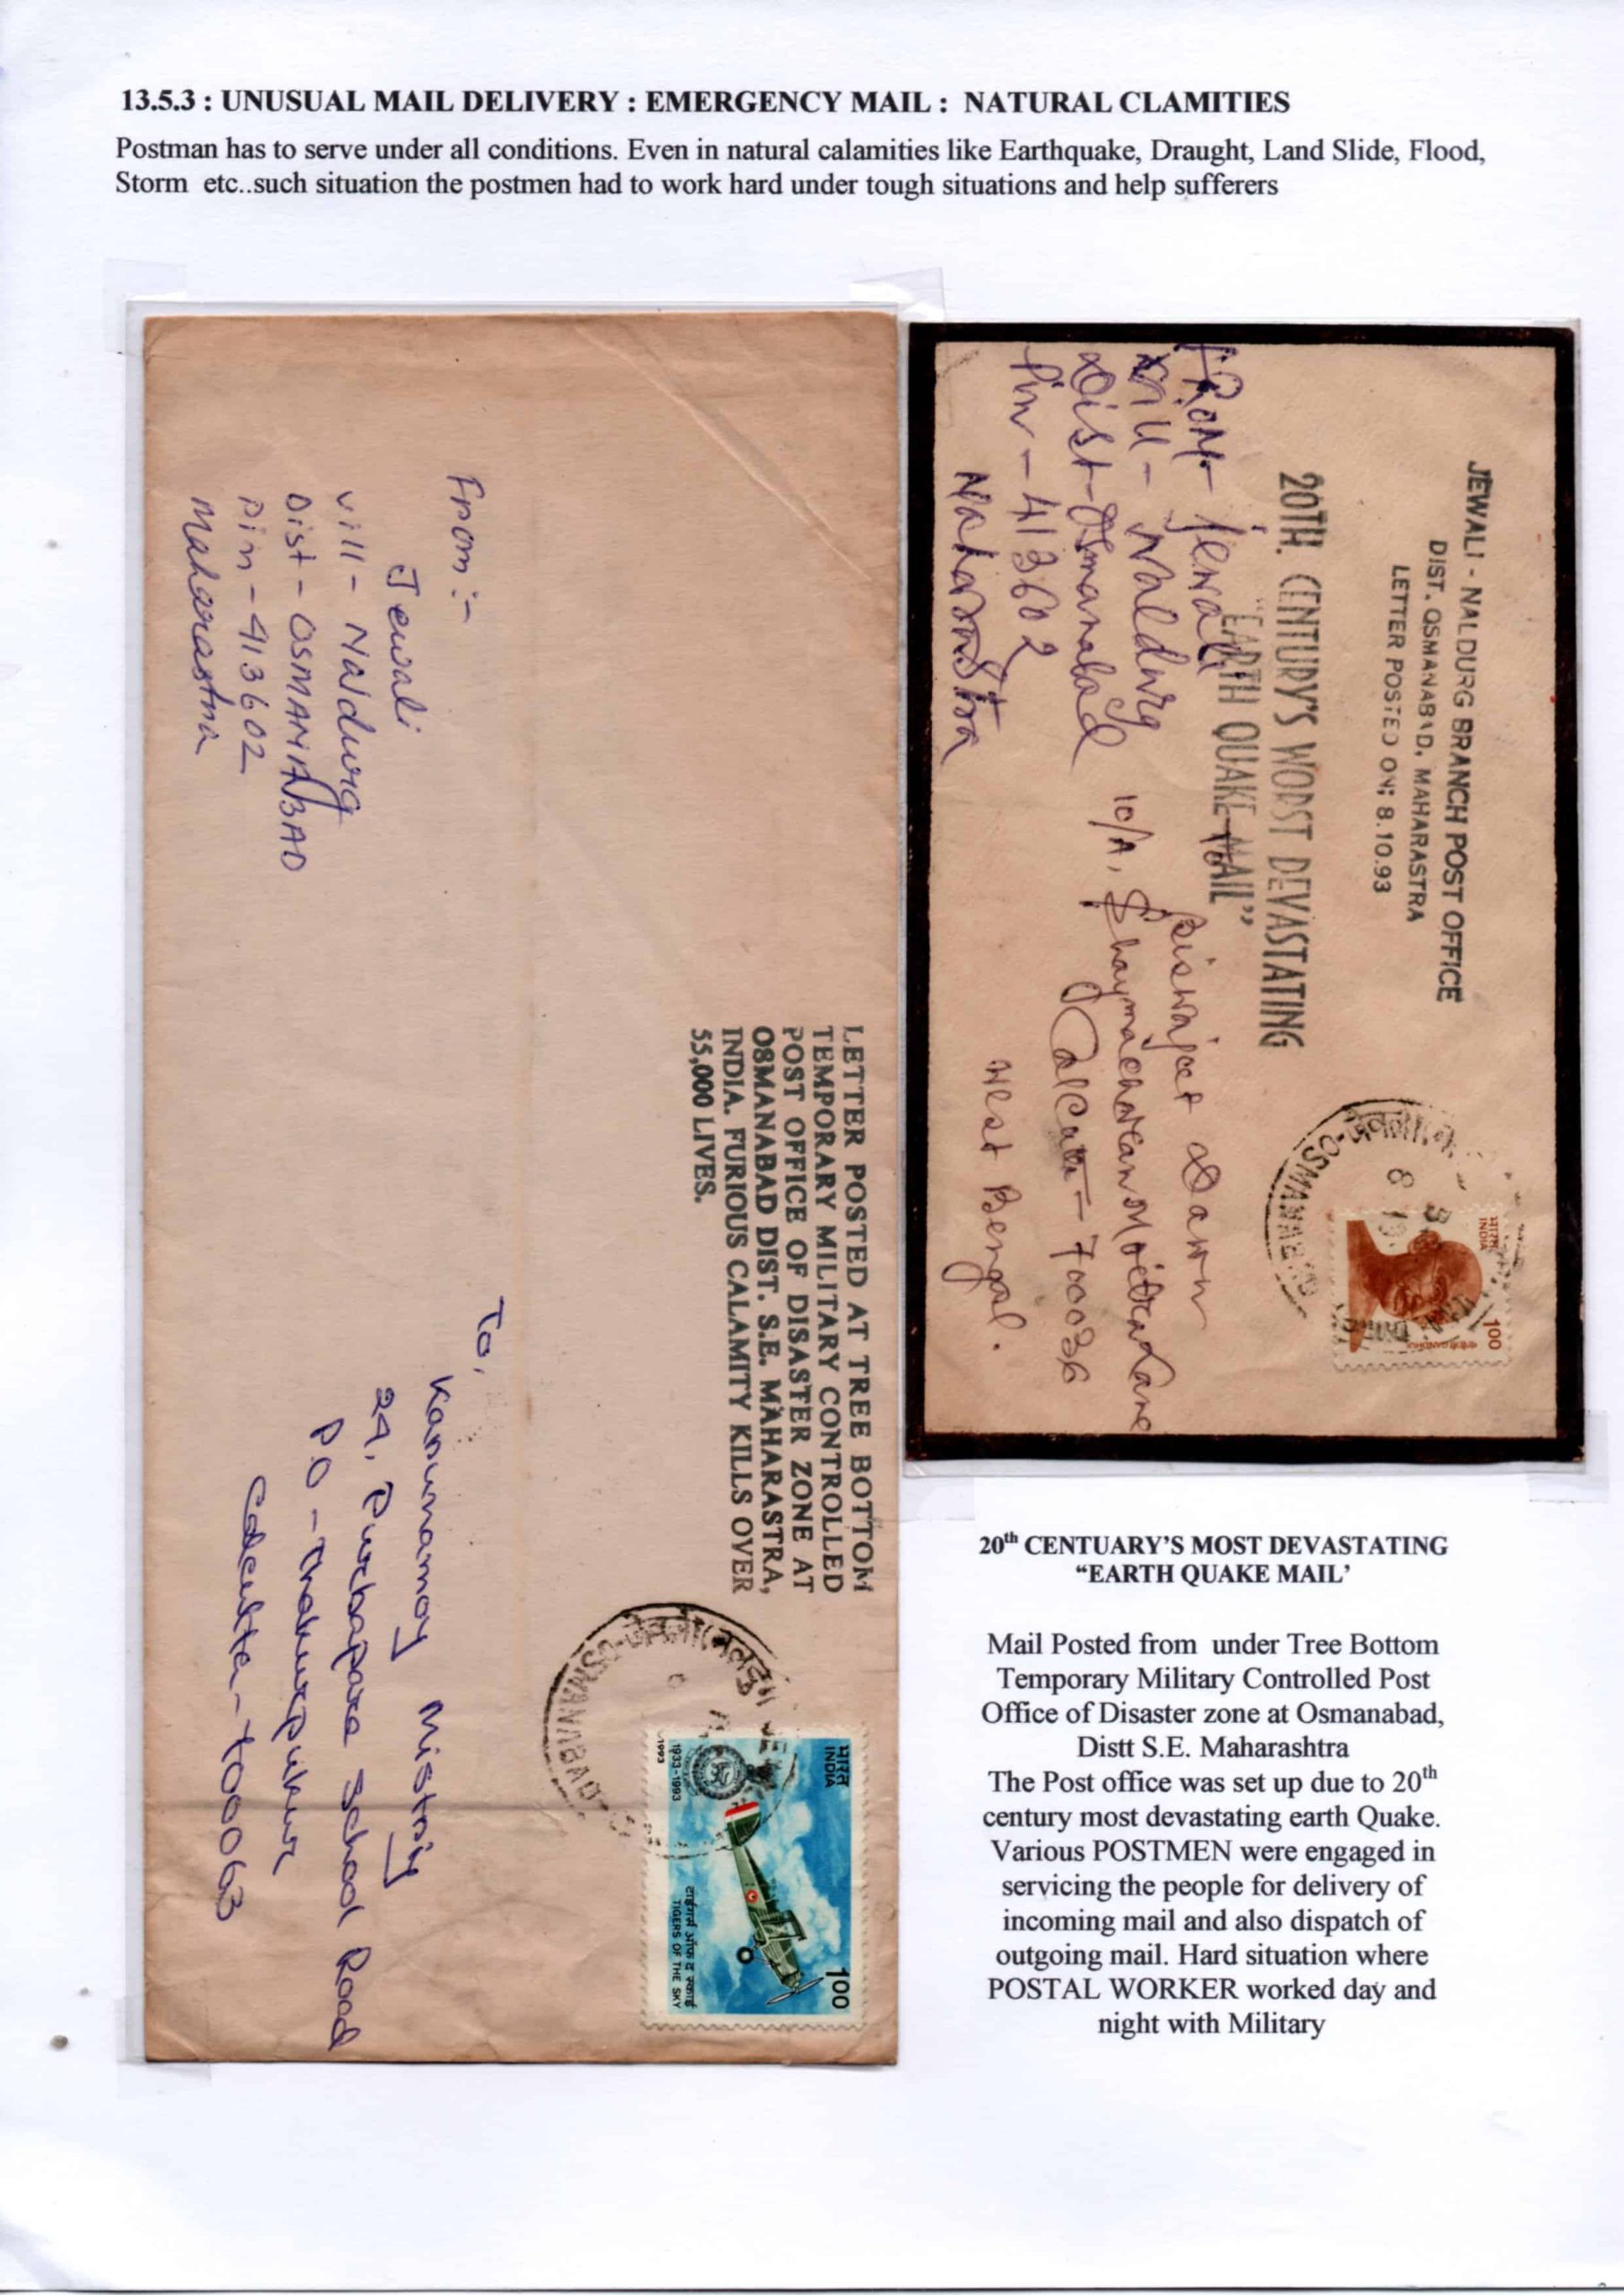 13.5.3 : UNUSUAL MAIL DELIVERY : EMERGENCY MAIL : NATURAL CLAMITIES
Postman has to serve under all conditions. Even in natural calamities like Earthquake, Draught, Land Slide, Flood,
Storm etc..such situation the postmen had to work hard under tough situations and help sufferers
LETTER POSTED AT TREE BOTTOM
TEMPORARY MILITARY CONTROLLED
POST OFFICE OF DISASTER ZONE AT
OSMANABAD DIST. S.E. MAHARASTRA,
INDIA. FURIOUS CALAMITY KILLS OVER
55,000 LIVES.
From :-
Jewali
Vill - Naldurg
Dist - OSMANABAD
Pin - 413602
Maharastra
To,
Karunamoy Mistry
24, Purbapara School Road
PO - Thakurpukur
Calcutta - 700063
OSMANABAD
भारत
INDIA
1933-1993
1993
टाईगर्स ऑफ द स्काई
TIGERS OF THE SKY
100
JEWALI - NALDURG BRANCH POST OFFICE
DIST. OSMANABAD, MAHARASTRA
LETTER POSTED ON; 8.10.93
20TH. CENTURY'S WORST DEVASTATING
"EARTH QUAKE MAIL"
FROM - Jewali
Vill - Naldurg
Dist - Osmanabad
Pin - 413602
Biswajeet Dawn
10/A,
Calcutta - 700036
West Bengal.
OSMANABAD
भारत
INDIA
100
20th CENTUARY'S MOST DEVASTATING
"EARTH QUAKE MAIL'
Mail Posted from under Tree Bottom
Temporary Military Controlled Post
Office of Disaster zone at Osmanabad,
Distt S.E. Maharashtra
The Post office was set up due to 20th
century most devastating earth Quake.
Various POSTMEN were engaged in
servicing the people for delivery of
incoming mail and also dispatch of
outgoing mail. Hard situation where
POSTAL WORKER worked day and
night with Military